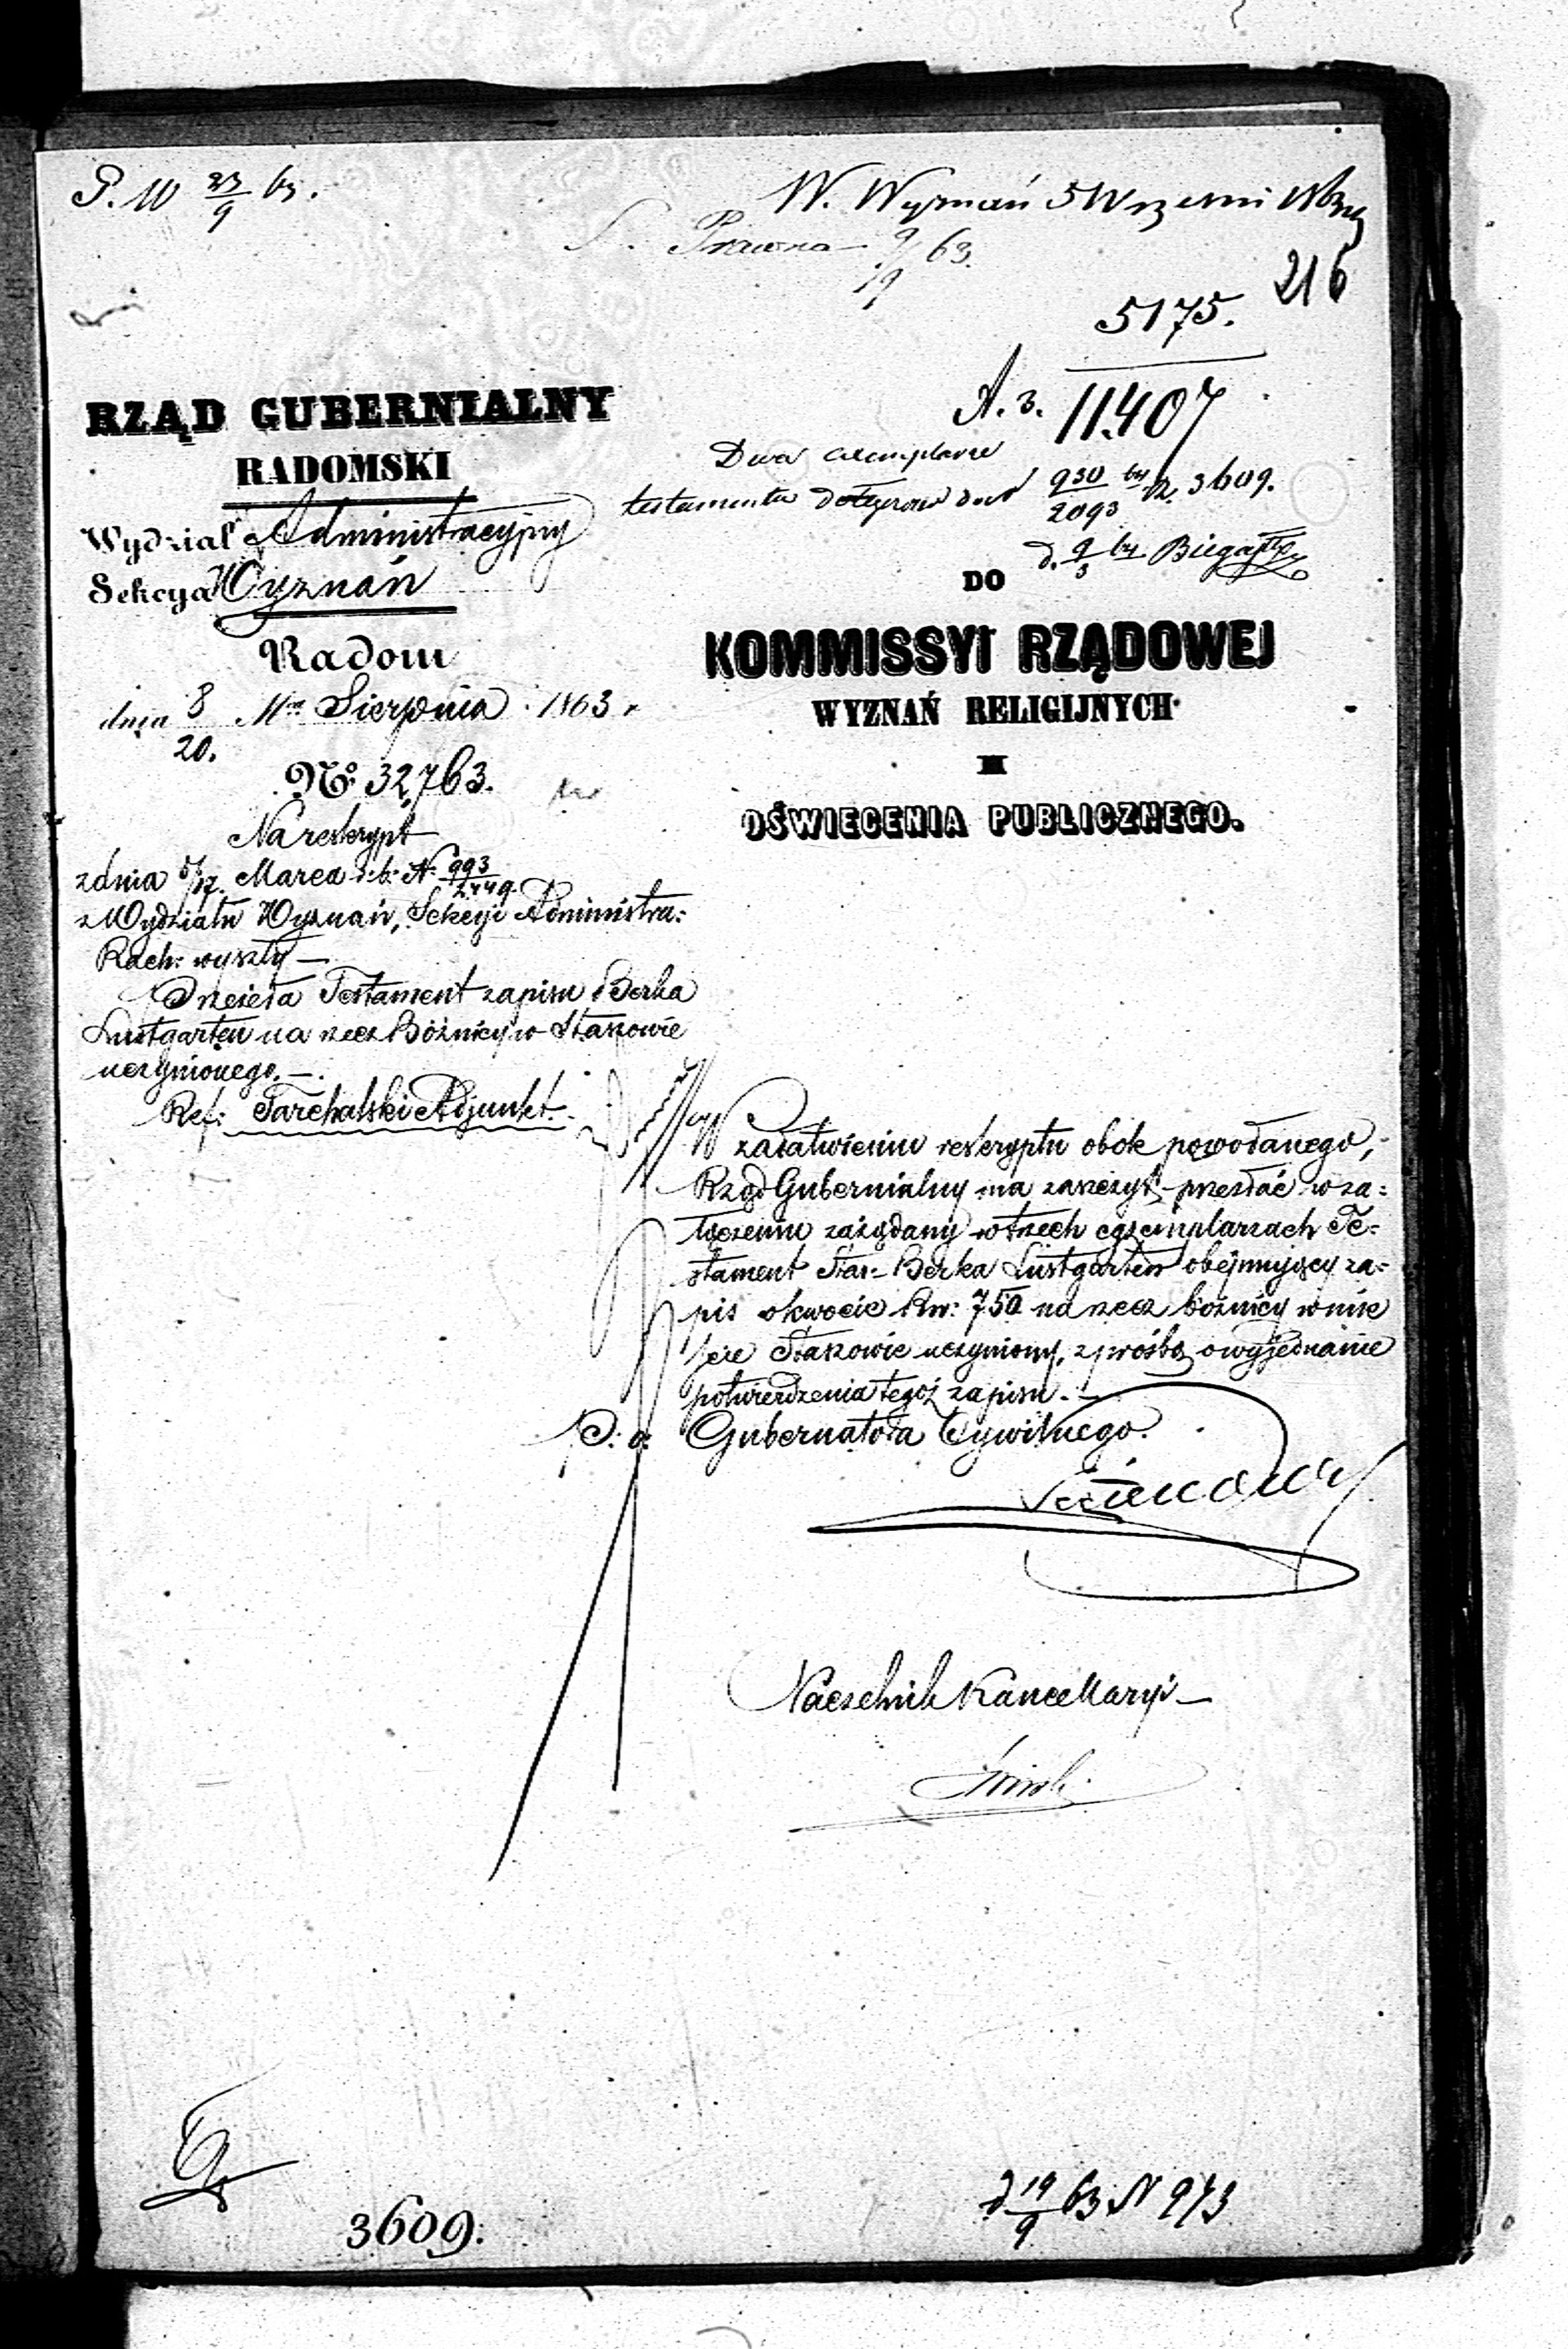 P. W 23/9 63.
W. Wyznań 5 Wrzesni
S. Prawna 9/9 63.
216
5175.
A. 3. 11.407
Dwa exemplarze
testamentu dołączono do N 930/2093 64 r. 3609.
d. 9/3 64
RZĄD GUBERNIALNY
RADOMSKI
Wydział Administracyjny
Sekcya Wyznań
Radom
dnia 8/20. Mca Sierpnia 1863 r.
№ 32,763.
Na reskrypt
z dnia 5/17. Marca r. b. N. 993/2449.
z Wydziału Wyznań, Sekcyi Administra:
Rach: wyszły —
Przesyła Testament zapisu Berka
Lustgarten na rzecz Bóżnicy w Staszowie
uczynionego. —
Ref: Tarchalski Adjunkt.
DO
KOMMISSYI RZĄDOWEJ
WYZNAŃ RELIGIJNYCH
I
OŚWIECENIA PUBLICZNEGO.
W załatwieniu reskryptu obok powołanego,
Rząd Gubernialny ma zaszczyt przesłać w za=
łączeniu zażądany w trzech egzemplarzach Te=
stament Star. Berka Lustgarten obejmujący za=
pis w kwocie Rsr: 750 na rzecz bóżnicy w mie
ście Staszowie uczyniony, z prośbą o wyjednanie
potwierdzenia tegoż zapisu. —
P. o. Gubernatora Cywilnego.
Naczelnik Kancellaryi —
3609.
d 19/9 63 N 973